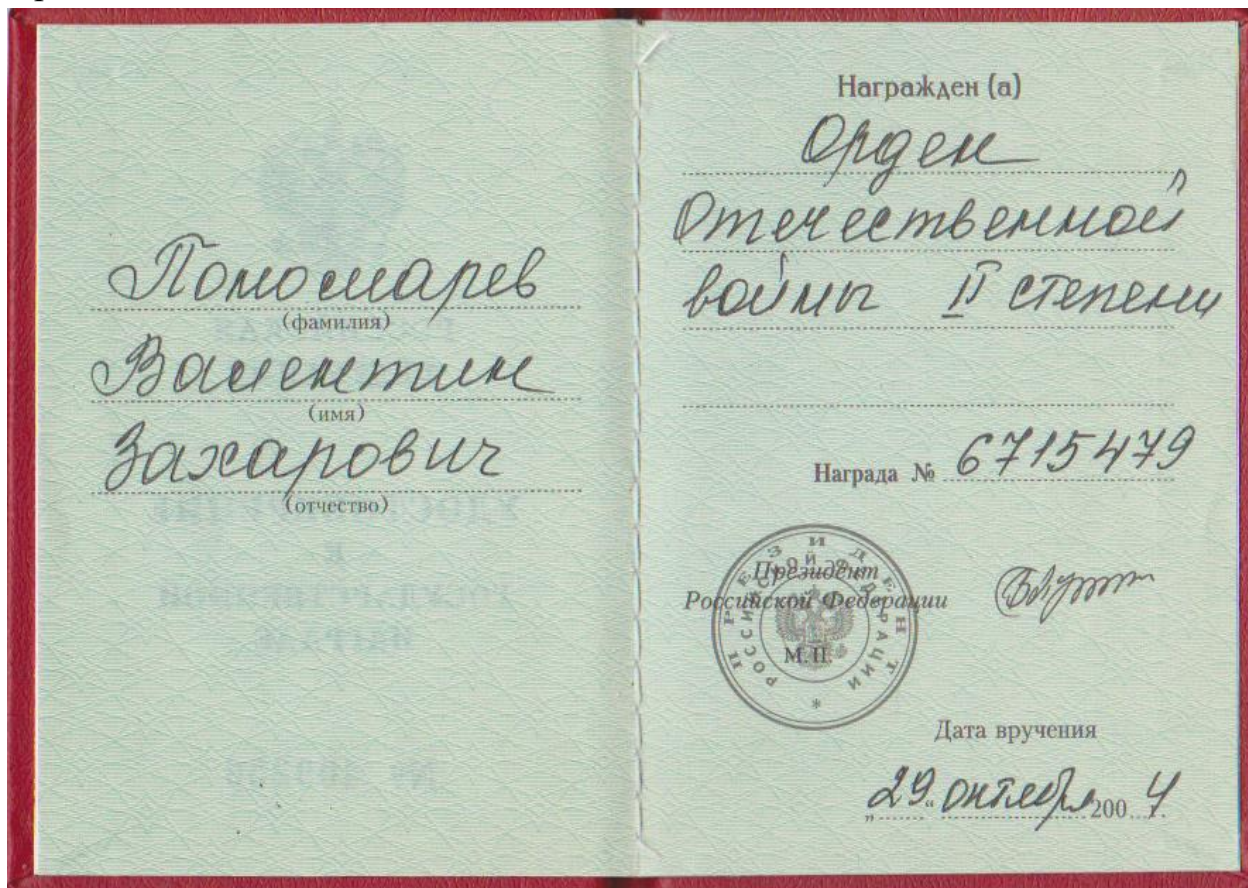 Пономарев
(фамилия)
Валентин
(имя)
Захарович
(отчество)
Награжден (а)
Орден
Отечественной
войны II степени
Награда № 6715479
Президент
Российской Федерации
М.П.
ПРЕЗИДЕНТ
РОССИЙСКОЙ ФЕДЕРАЦИИ
Дата вручения
„29“ октября 2004